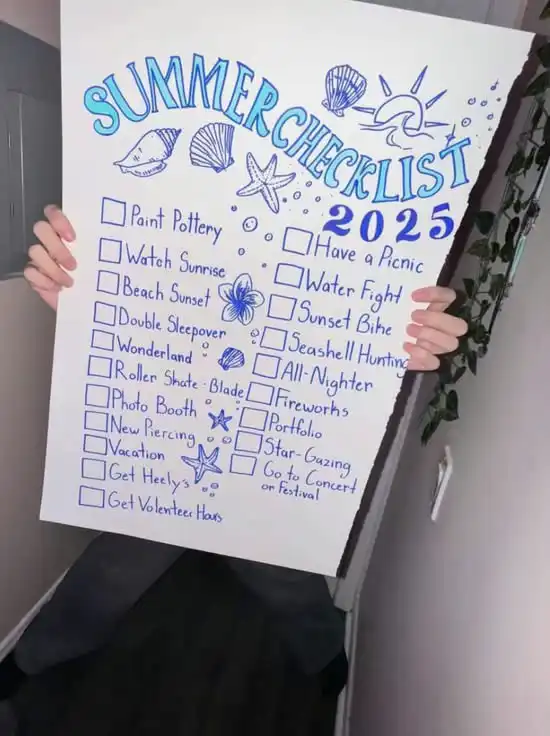 SUMMER CHECKLIST
2025
Paint Pottery
Watch Sunrise
Beach Sunset
Double Sleepover
Wonderland
Roller Skate-Blade
Photo Booth
New Piercing
Vacation
Get Heely's
Get Volunteer Hours
Have a Picnic
Water Fight
Sunset Bike
Seashell Hunting
All-Nighter
Fireworks
Portfolio
Star-Gazing
Go to Concert
or Festival